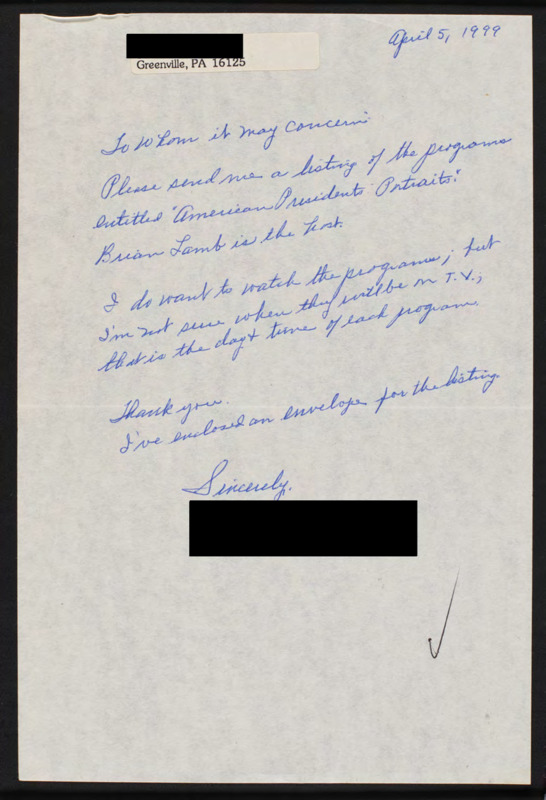 April 5, 1999
Greenville, PA 16125
To Whom it may concern:
Please send me a listing of the programs
entitled "American Presidents Portraits."
Brian Lamb is the host.
I do want to watch the programs; but
I'm not sure when they will be on T.V.;
that is the day & time of each program.
Thank you.
I've enclosed an envelope for the listing.
Sincerely,